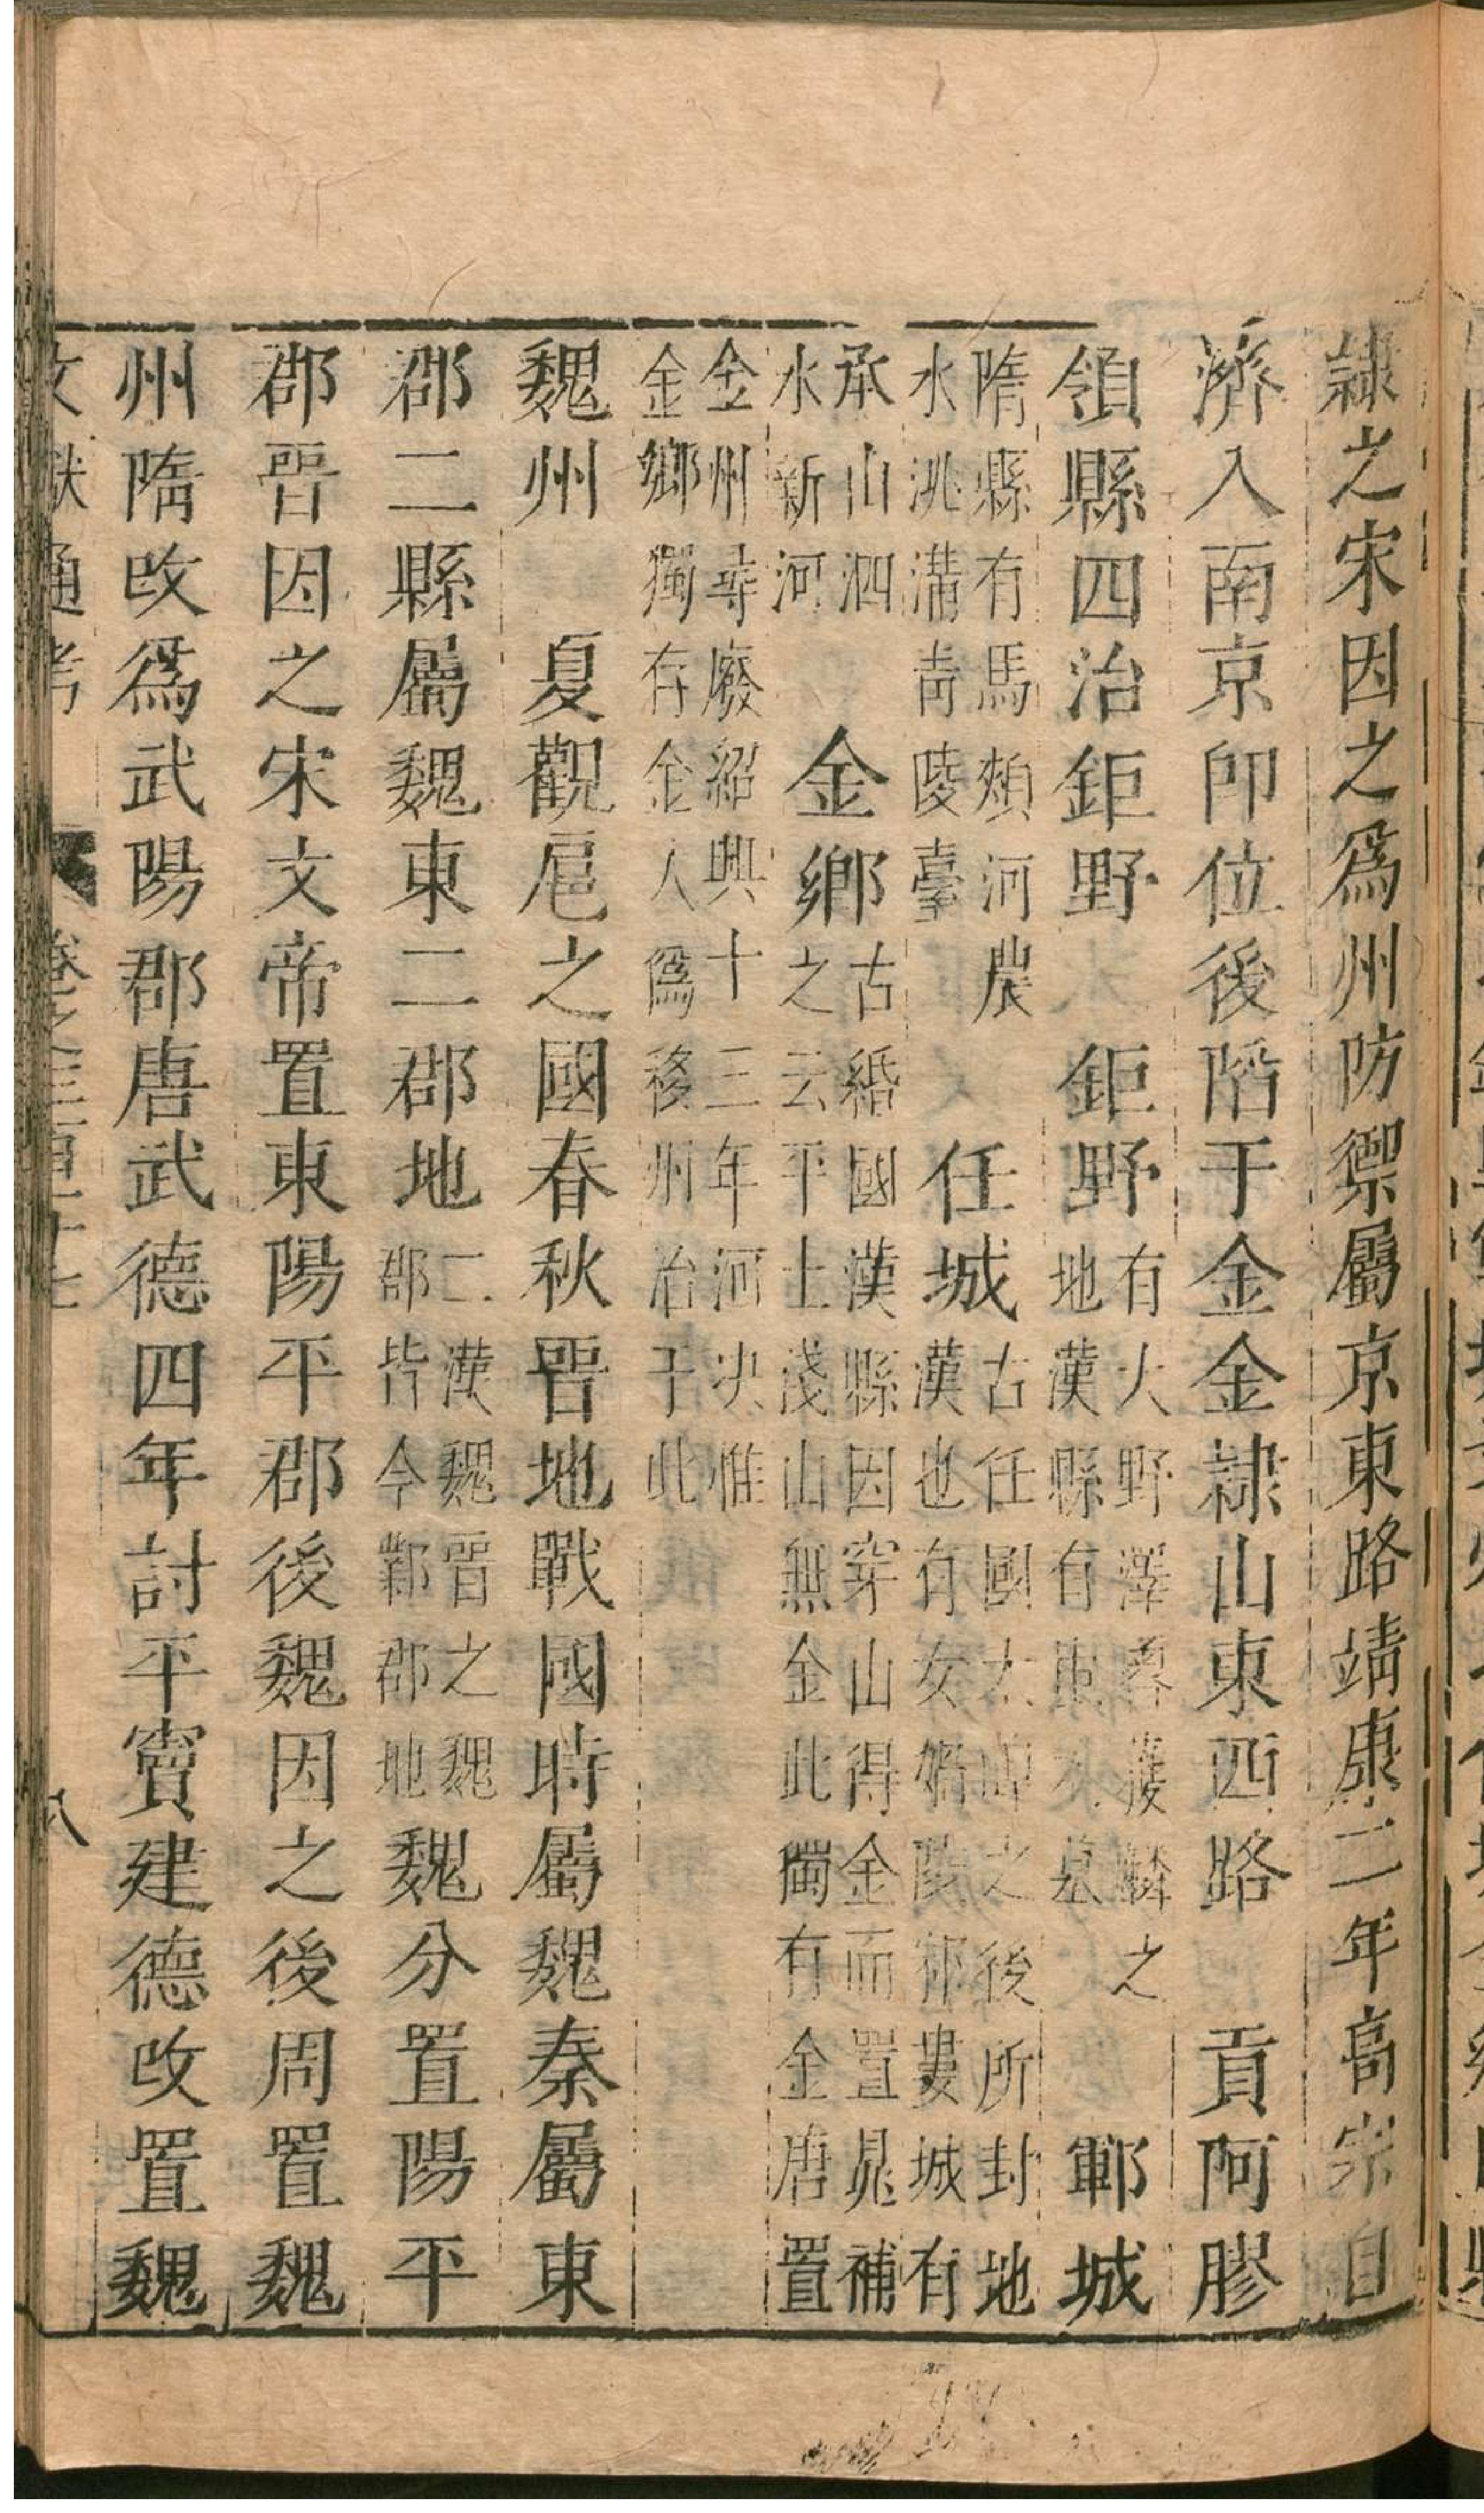 隷之宋因之爲州防禦屬京東路靖康二年高宗自
濟入南京卽位後陷于金金隷山東西路 貢阿膠
領縣四治鉅野 鉅野有大野澤 獲麟之地漢縣有 墓 鄆城
隋縣有馬頰河農水洮溝青陵臺 任城古任國太 之後所封地漢也有女媧陵 婁城有
承山泗水新河 金鄉古緡國漢縣因穿山得金而置晁補之云平土淺山無金此獨有金唐置
金州尋廢紹興十三年河决惟金鄉獨存金人爲移州治于此
魏州 夏觀扈之國春秋晋地戰國時屬魏秦屬東
郡二縣屬魏東二郡地二漢魏晋之魏郡皆今鄴郡地魏分置陽平
郡晋因之宋文帝置東陽平郡後魏因之後周置魏
州隋改爲武陽郡唐武德四年討平竇建德改置魏
文獻通考 卷之三百十七 八